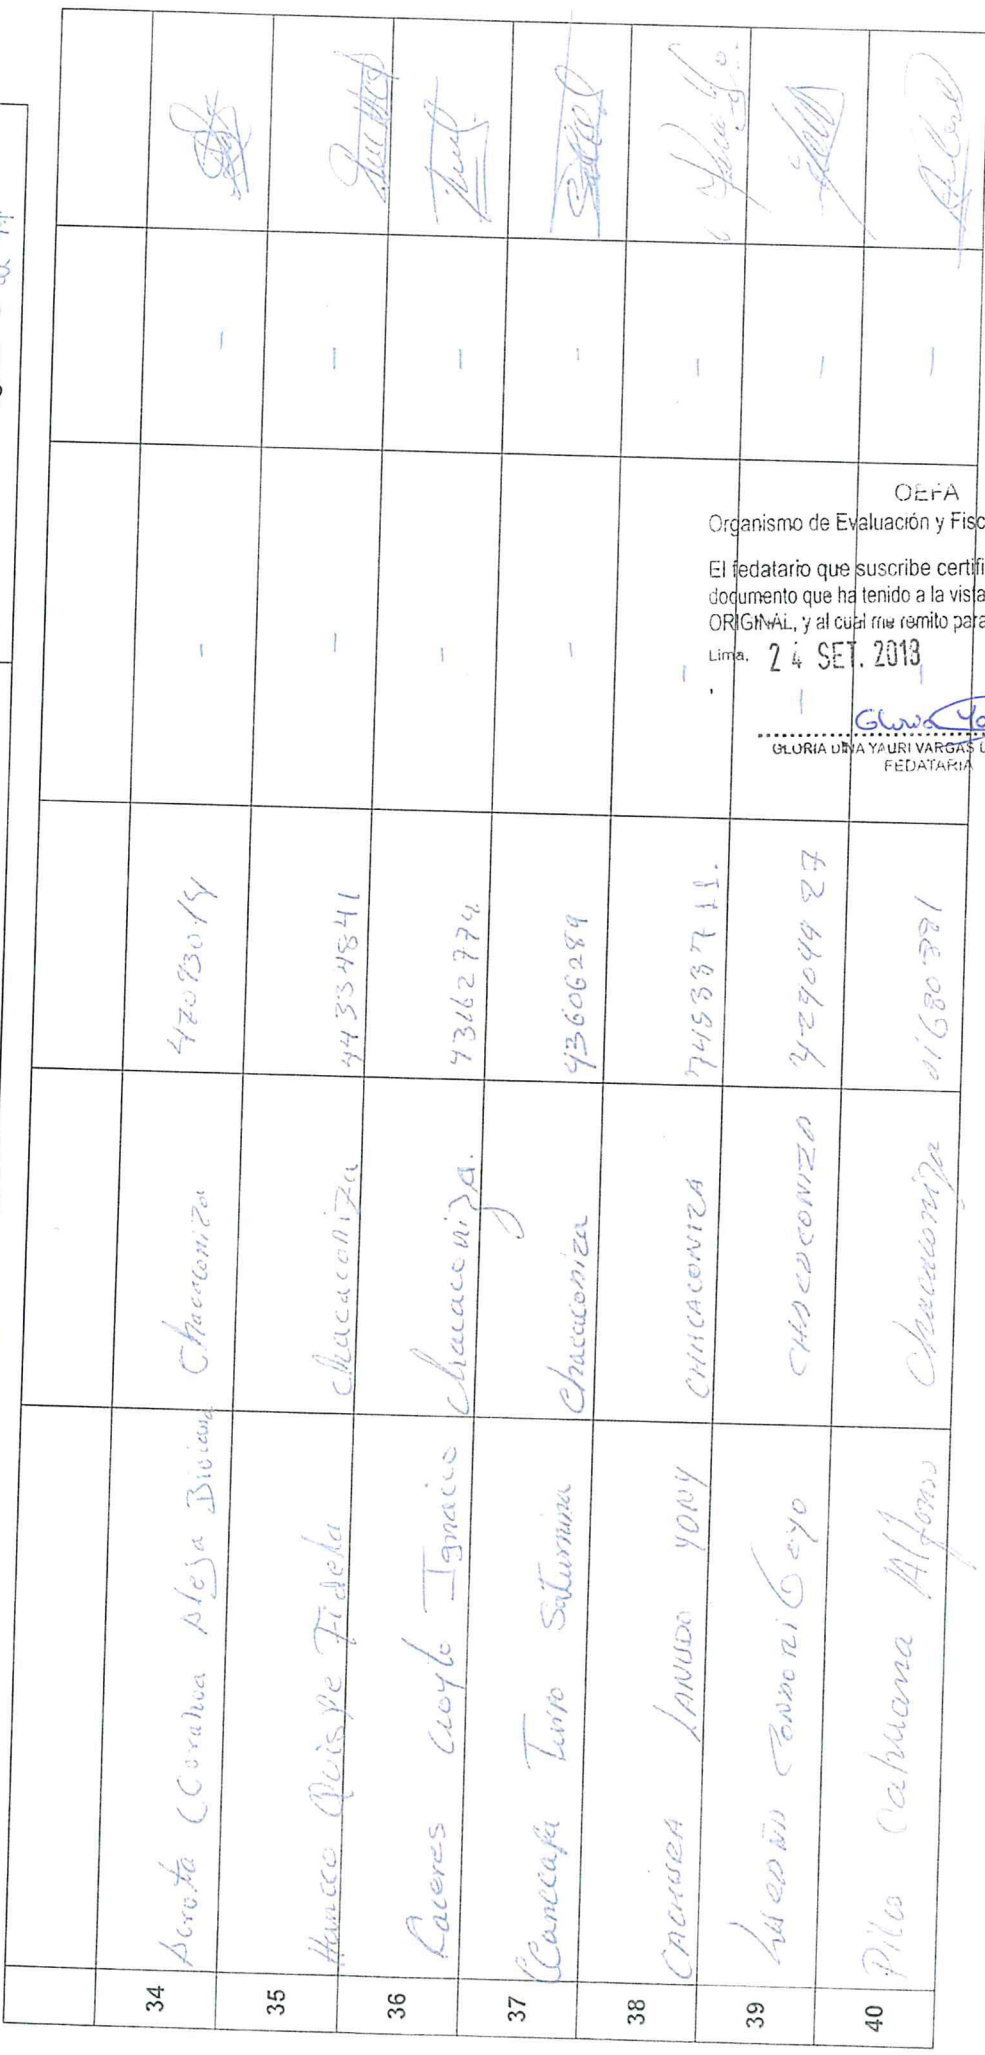 34 Ccorahua Aleja Biviana Chacaconiza 47093014 - -
35 Huancco Quispe Fidela Chacaconiza 44334841 - -
36 Caceres Ccoyto Ignacio Chacaconiza. 43162774. - -
37 Ccanccapa Turpo Saturnina Chacaconiza 43606289 - -
38 CACHURA LANUDO YONY CHACACONIZA 74533711. - -
39 Condori Goyo CHACACONIZA 42904927 - -
40 Pilco Cahuana Alfonso Chacaconiza 01680381 - -
OEFA
Organismo de Evaluación y Fisc
El fedatario que suscribe certifi
documento que ha tenido a la vista
ORIGINAL, y al cual me remito para
Lima, 24 SET. 2013
GLORIA DINA YAURI VARGAS
FEDATARIA